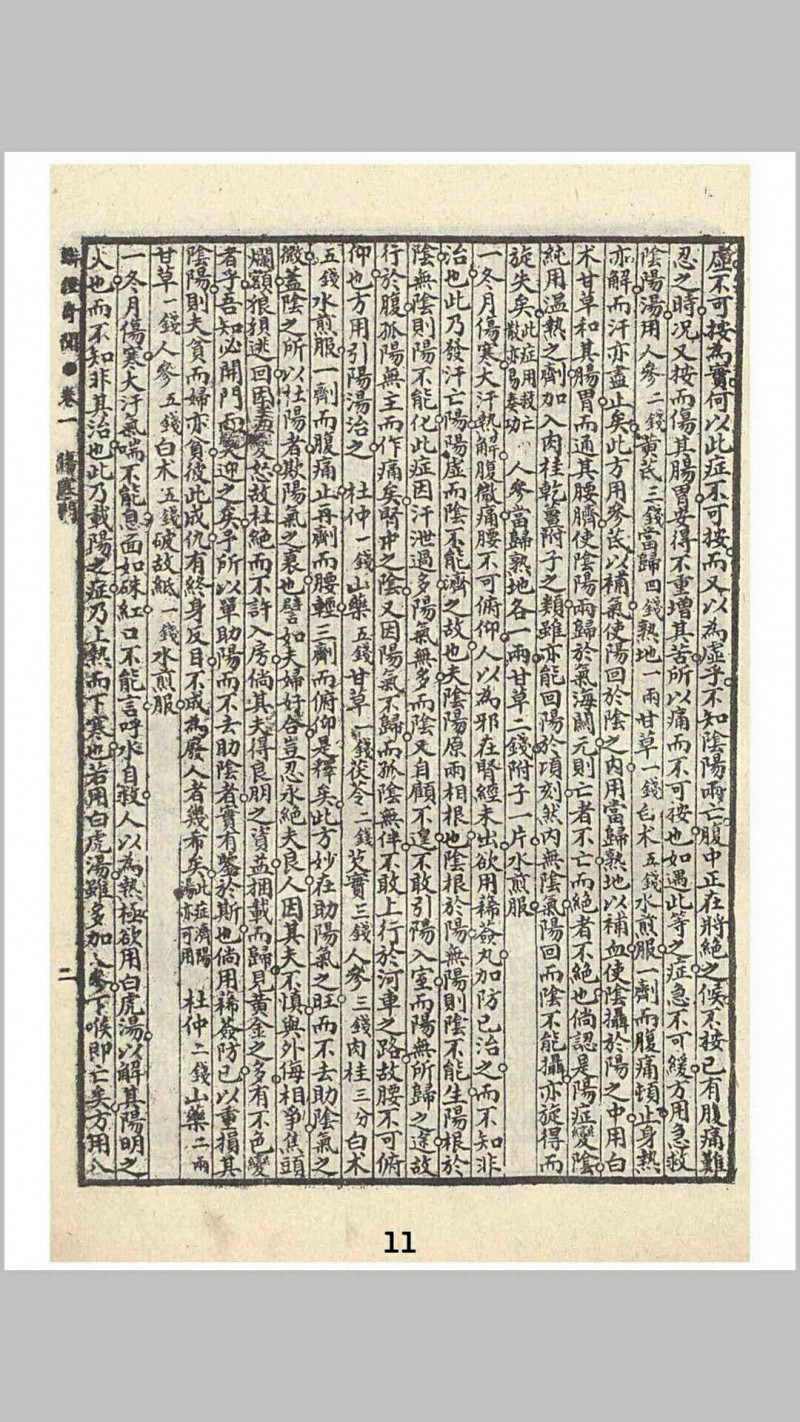 虛不可按為實何以此症不可按而又以為虛乎不知陰陽兩亡腹中正在將絕之候不按已有腹痛難
忍之時况又按而傷其腸胃安得不重增其苦所以痛而不可按也如遇此等之症急不可緩方用急救
陰陽湯用人參二錢黃芪三錢當歸四錢熟地一兩甘草一錢白朮五錢水煎服一劑而腹痛頓止身熱
亦解而汗亦盡止矣此方用參芪以補氣使陽回於陰之內用當歸熟地以補血使陰攝於陽之中用白
术甘草和其腸胃而通其腰臍使陰陽兩歸於氣海關元則亡者不亡而絕者不絕也倘認是陽症變陰
純用溫熱之劑加入肉桂乾薑附子之類雖亦能回陽於頃刻然內無陰氣陽回而陰不能攝亦旋得而
旋失矣此症用救亡散亦易奏功 人參當歸熟地各一兩甘草二錢附子一片水煎服
一冬月傷寒大汗熱解腹微痛腰不可俯仰人以為邪在腎經未出欲用豨薟丸加防已治之而不知非
治也此乃發汗亡陽陽虛而陰不能濟之故也夫陰陽原兩相根也陰根於陽無陽則陰不能生陽根於
陰無陰則陽不能化此症因汗泄過多陽氣無多而陰又自顧不遑不敢引陽入室而陽無所歸之逵故
行於腹孤陽無主而作痛矣腎中之陰又因陽氣不歸而孤陰無伴不敢上行於河車之路故腰不可俯
仰也方用引陽湯治之 杜仲一錢山藥五錢甘草一錢茯苓二錢芡實三錢人參三錢肉桂三分白术
五錢水煎服一劑而腹痛止再劑而腰輕三劑而俯仰是釋矣此方妙在助陽氣之旺而不去助陰氣之
微蓋陰之所以杜陽者欺陽氣之衰也譬如夫婦好合豈忍永絕夫良人因其夫不慎與外侮相爭焦頭
爛額狼狽逃回因羞變怒故杜絕而不許入房倘其夫得良朋之資益捆載而歸見黃金之多有不色變
者乎吾知必開門而笑迎之矣乎所以單助陽而不去助陰者實有鑒於斯也倘用豨薟防已以重損其
陰陽則夫貧而婦亦貧彼此成仇有終身反目不成為廢人者幾希矣此症濟陽湯亦可用 杜仲二錢山藥二兩
甘草一錢人參五錢白术五錢破故紙一錢水煎服
一冬月傷寒大汗氣喘不能息面如硃紅口不能言呼水自救人以為熱極欲用白虎湯以解其陽明之
火也而不知非其治也此乃戴陽之症乃上熱而下寒也若用白虎湯雖多加人參下喉即亡矣方用八
辨證奇聞●卷一 傷寒門 二
11